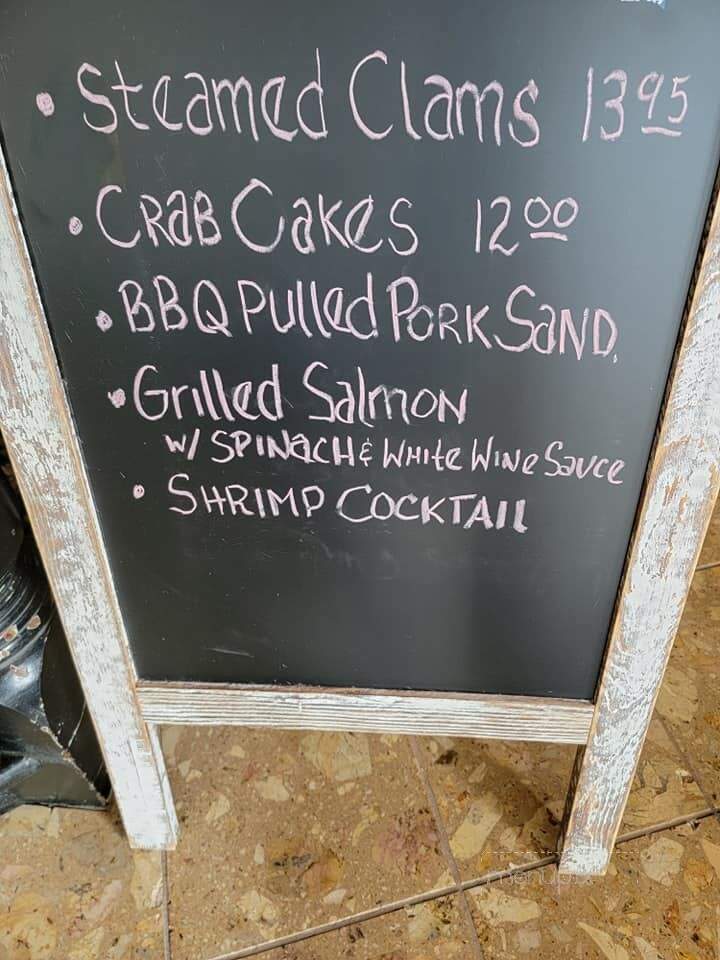 • Steamed Clams 13 95
• CRAB Cakes 12 00
• BBQ Pulled PORK SAND.
• Grilled Salmon
W/ SPINACH & WHite WiNe Sauce
• SHRIMP COCKTAIL
menupix